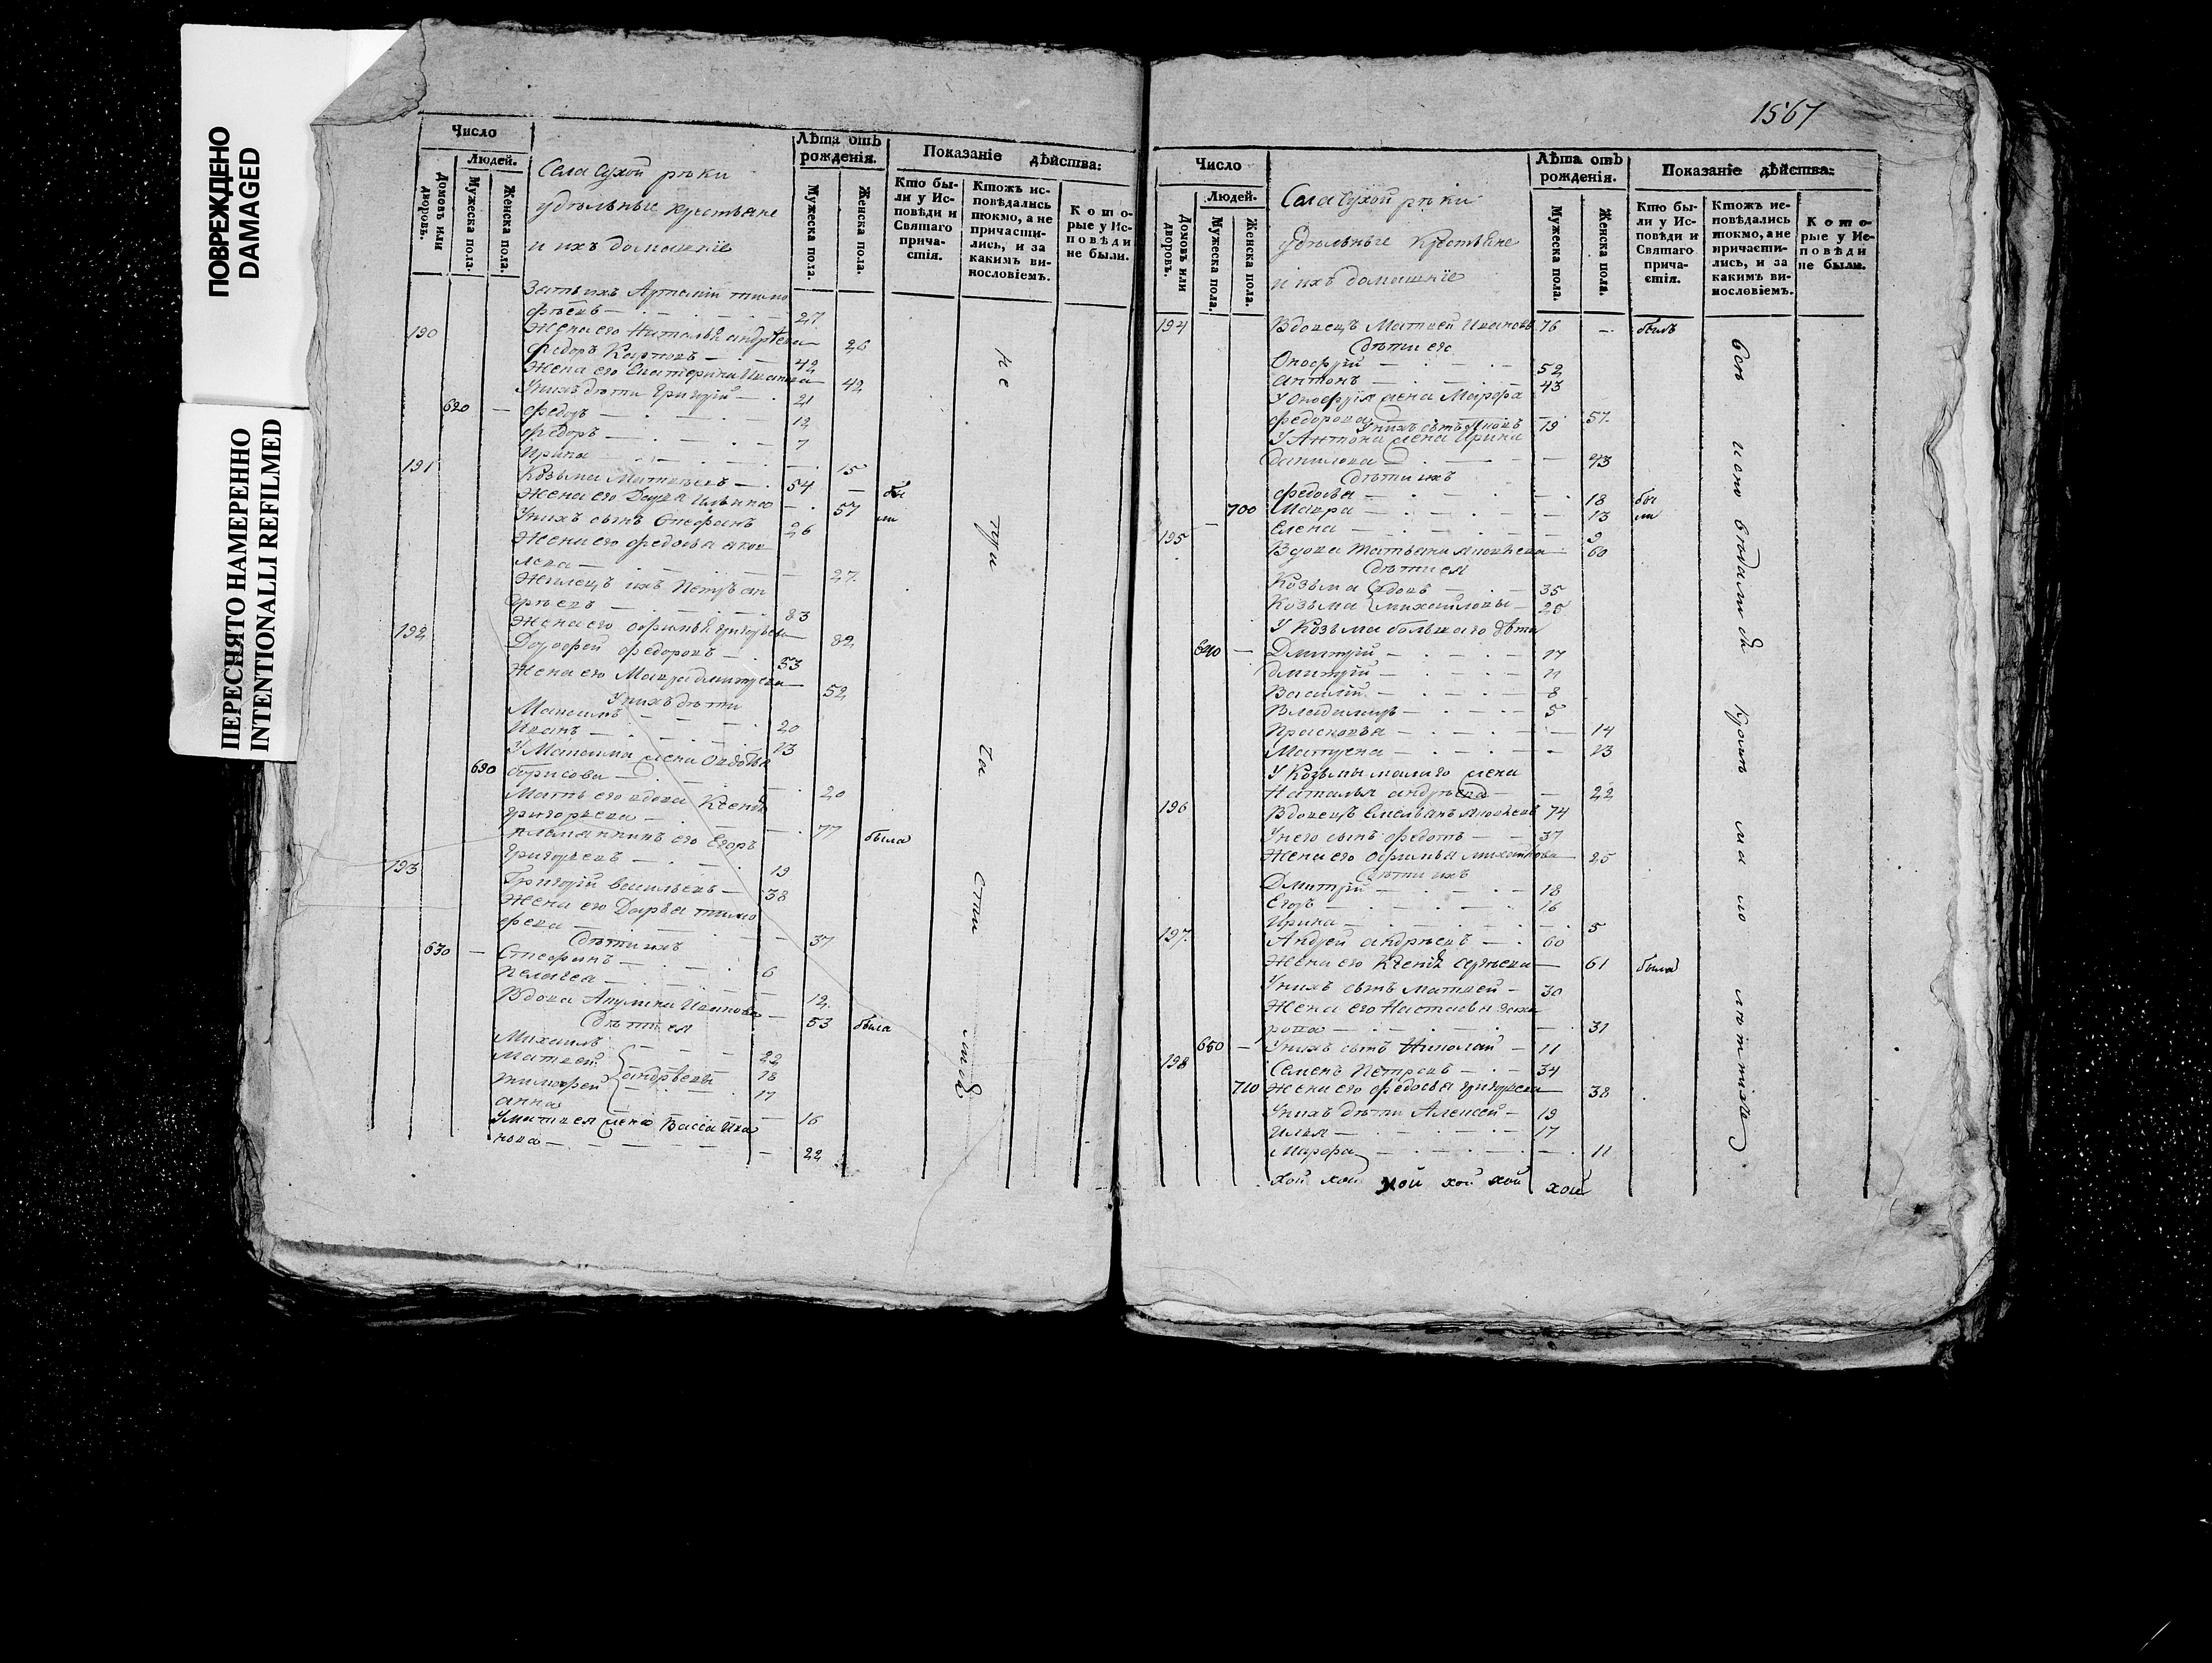 ПОВРЕЖДЕНО
DAMAGED
ПЕРЕСНЯТО НАМЕРЕННО
INTENTIONALLI REFILMED
Число
Людей.
Домовъ или дворовъ.
Мужеска пола.
Женска пола.
Села Сухой рѣки
удѣльные крестьяне
и ихъ домашніе
Лѣта отъ рожденія.
Мужеска пола.
Женска пола.
Показаніе дѣйства:
Кто были у Исповѣди и Святаго причастія.
Ктожъ исповѣдались токмо, а не причастились, и за какимъ винословіемъ.
Которые у Исповѣди не были.
Зять ихъ Артемій Тимо
фѣевъ — 27
Жена его Наталья Андрѣева — 26
190 Федоръ Карповъ — 42
Жена его Екатерина Иванова — 42
У нихъ дѣти Григорій — 21
620 — Федоръ — 12
Федоръ — 7
Ирина — 15
191 Козьма Матвѣевъ — 54 — бы
Жена его Дарья Ильина — 57 ли
У нихъ сынъ Стефанъ 26
Жена его Федосья Яков
лева — 27
Жилецъ ихъ Петръ Ан
дрѣевъ — 83
Жена его Офимья Григорьева — 82
192 Дорофей Федоровъ — 53
Жена его Мавра Дмитрева — 52
У нихъ дѣти
Максимъ — 20
Иванъ — 13
У Максима жена Овдотья
690 Борисова — 20
Мать его вдова Ксенія
Григорьева — 77 была
племянникъ его Егоръ
Григорьевъ — 19
193 Григорій Васильевъ — 38
Жена его Дарья Тимо
феева — 37
Дѣти ихъ
630 — Стефанъ — 6
Пелагея — 12
Вдова Акулина Иванова — 53 была
Дѣти ея
Михаилъ — 22
Матвей 18
Тимофей Андрѣевы 17
Анна — 16
У Матвея жена Васса Ива
нова — 22
не при ча сти лись
1567
Число
Людей.
Домовъ или дворовъ.
Мужеска пола.
Женска пола.
Села Сухой рѣки
Удѣльные крестьяне
и ихъ домашніе
Лѣта отъ рожденія.
Мужеска пола.
Женска пола.
Показаніе дѣйства:
Кто были у Исповѣди и Святаго причастія.
Ктожъ исповѣдались токмо, а не причастились, и за какимъ винословіемъ.
Которые у Исповѣди не были.
194 Вдовецъ Матвей Ивановъ 76 — былъ
Дѣти его
Онофрій — 52
Антонъ — 43
У Онофрія жена Марфа
Федорова — 57
У нихъ сынъ 19
У Антона жена Ирина
Данилова — 43
Дѣти ихъ
Федосья — 18 бы
700 Мавра — 13 ли
Елена — 9
195 Вдова Татьяна — 60
Дѣти ея
Козьма вдовъ — 35
Козьма Михайловы — 25
У Козьма большаго дѣти
640 — Дмитрій — 17
Дмитрій — 11
Василій — 8
Владимиръ — 5
Прасковья — 14
Матрена — 13
У Козьмы малаго жена
Наталья Андрѣева — 22
196 Вдовецъ Емельянъ 74
У него сынъ Федотъ — 37
Жена его Офимья Михайлова — 25
Дѣти ихъ
Дмитрій — 18
Егоръ — 16
Ирина — 5
197 Андрей Андрѣевъ — 60
Жена его Ксенія Сергѣева — 61 была
У нихъ сынъ Матвей — 30
Жена его Настасья Заха
рова — 31
650 — У нихъ сынъ Николай — 11
198 Семенъ Петровъ — 34
710 Жена его Федосья Григорьева — 38
У нихъ дѣти Алексей — 19
Илья — 17
Марфа — 11
хой хой хой хой хой хой
кромѣ ма ло лѣтнихъ